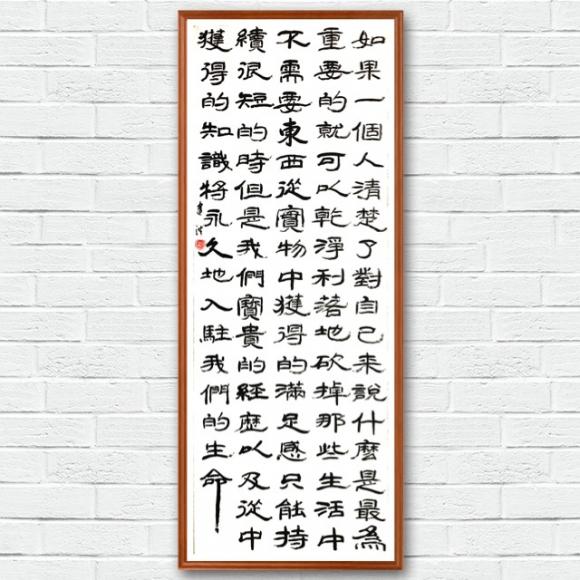 如果一個人清楚了對自己來說什麼是最為
重要的就可以乾淨利落地砍掉那些生活中
不需要東西從實物中獲得的滿足感只能持
續很短的時但是我們寶貴的經歷以及從中
獲得的知識將永久地入駐我們的生命